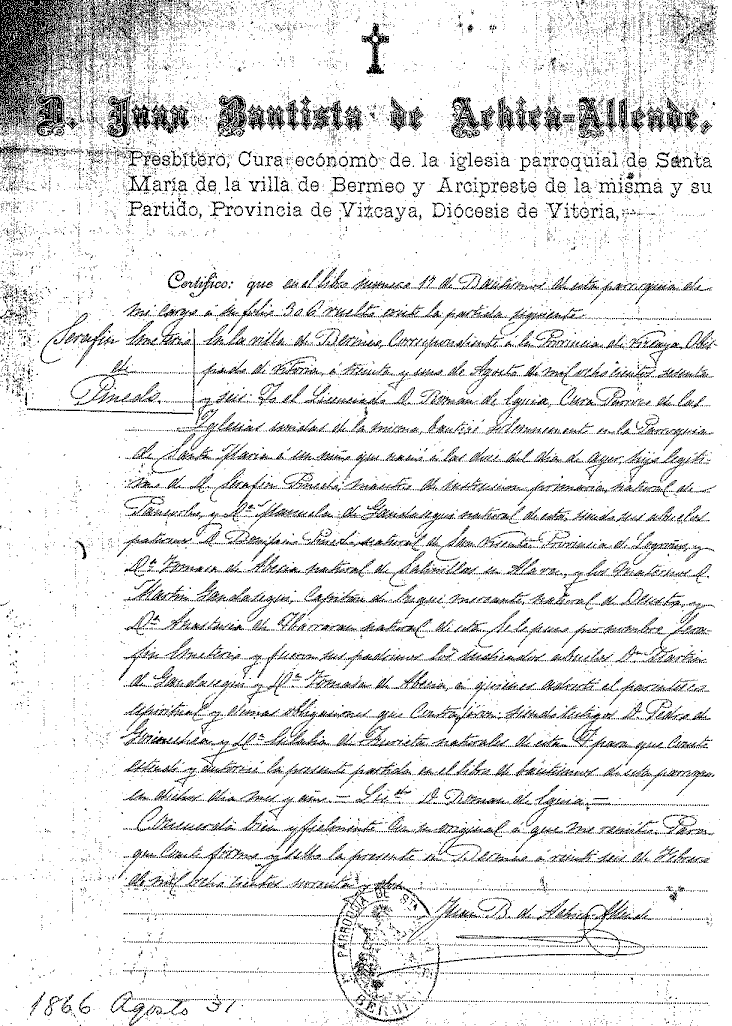 D. Juan Bautista de Achica-Allende,
Presbítero, Cura ecónomo de la iglesia parroquial de Santa
María de la villa de Bermeo y Arcipreste de la misma y su
Partido, Provincia de Vizcaya, Diócesis de Vitoria,
Certifico: que en el libro numero 17 de Bautismos de esta parroquia de
mi cargo a su folio 306 vuelto existe la partida siguiente
Serafin Emeterio
de
Pineda.
En la villa de Bermeo, Correspondiente á la Provincia de Vizcaya, Obis-
pado de Vitoria, á treinta y uno de Agosto de mil ochocientos sesenta
y seis: Yo el Licenciado D. Roman de Eguia, Cura Parroco de las
Iglesias unidas de la misma, bauticé solemnemente en la Parroquia
de Santa Maria á un niño que nació á las doce del dia de ayer, hijo legiti-
mo de D. Serafin Pineda, maestro de instruccion primaria, natural de
y Dª Manuela de Gandasegui natural de esta, siendo sus abuelos
paternos D. Bonifacio Pineda natural de San Vicente Provincia de Logroño, y
Dª Tomasa de Abecia natural de Salinillas en Alava, y los maternos D.
Martin Gandasegui, Capitan de buque mercante, natural de y
Dª Anastasia de natural de esta. Se le puso por nombre Sera-
fin Emeterio y fueron sus padrinos los sus abuelos Dn Martin
de Gandasegui y Dª Tomasa de Abecia, á quienes advertí el parentesco
espiritual y demas obligaciones que Contrajeron: siendo testigos D. Pedro de
y Dª Eulalia de naturales de esta. Y para que Conste
estendí y autoricé la presente partida en el libro de bautismos de esta parroquia
en dichos dia mes y año. — Licdo. D. Roman de Eguia. —
Concuerda bien y fielmente Con su original á que me remito. Para
que Conste firmo y sello la presente en Bermeo á veinte seis de Febrero
de mil ocho cientos noventa y
Juan B. de Achica-Allende
PARROQUIA DE STA. MARIA DE
BERMEO
1866 Agosto 31